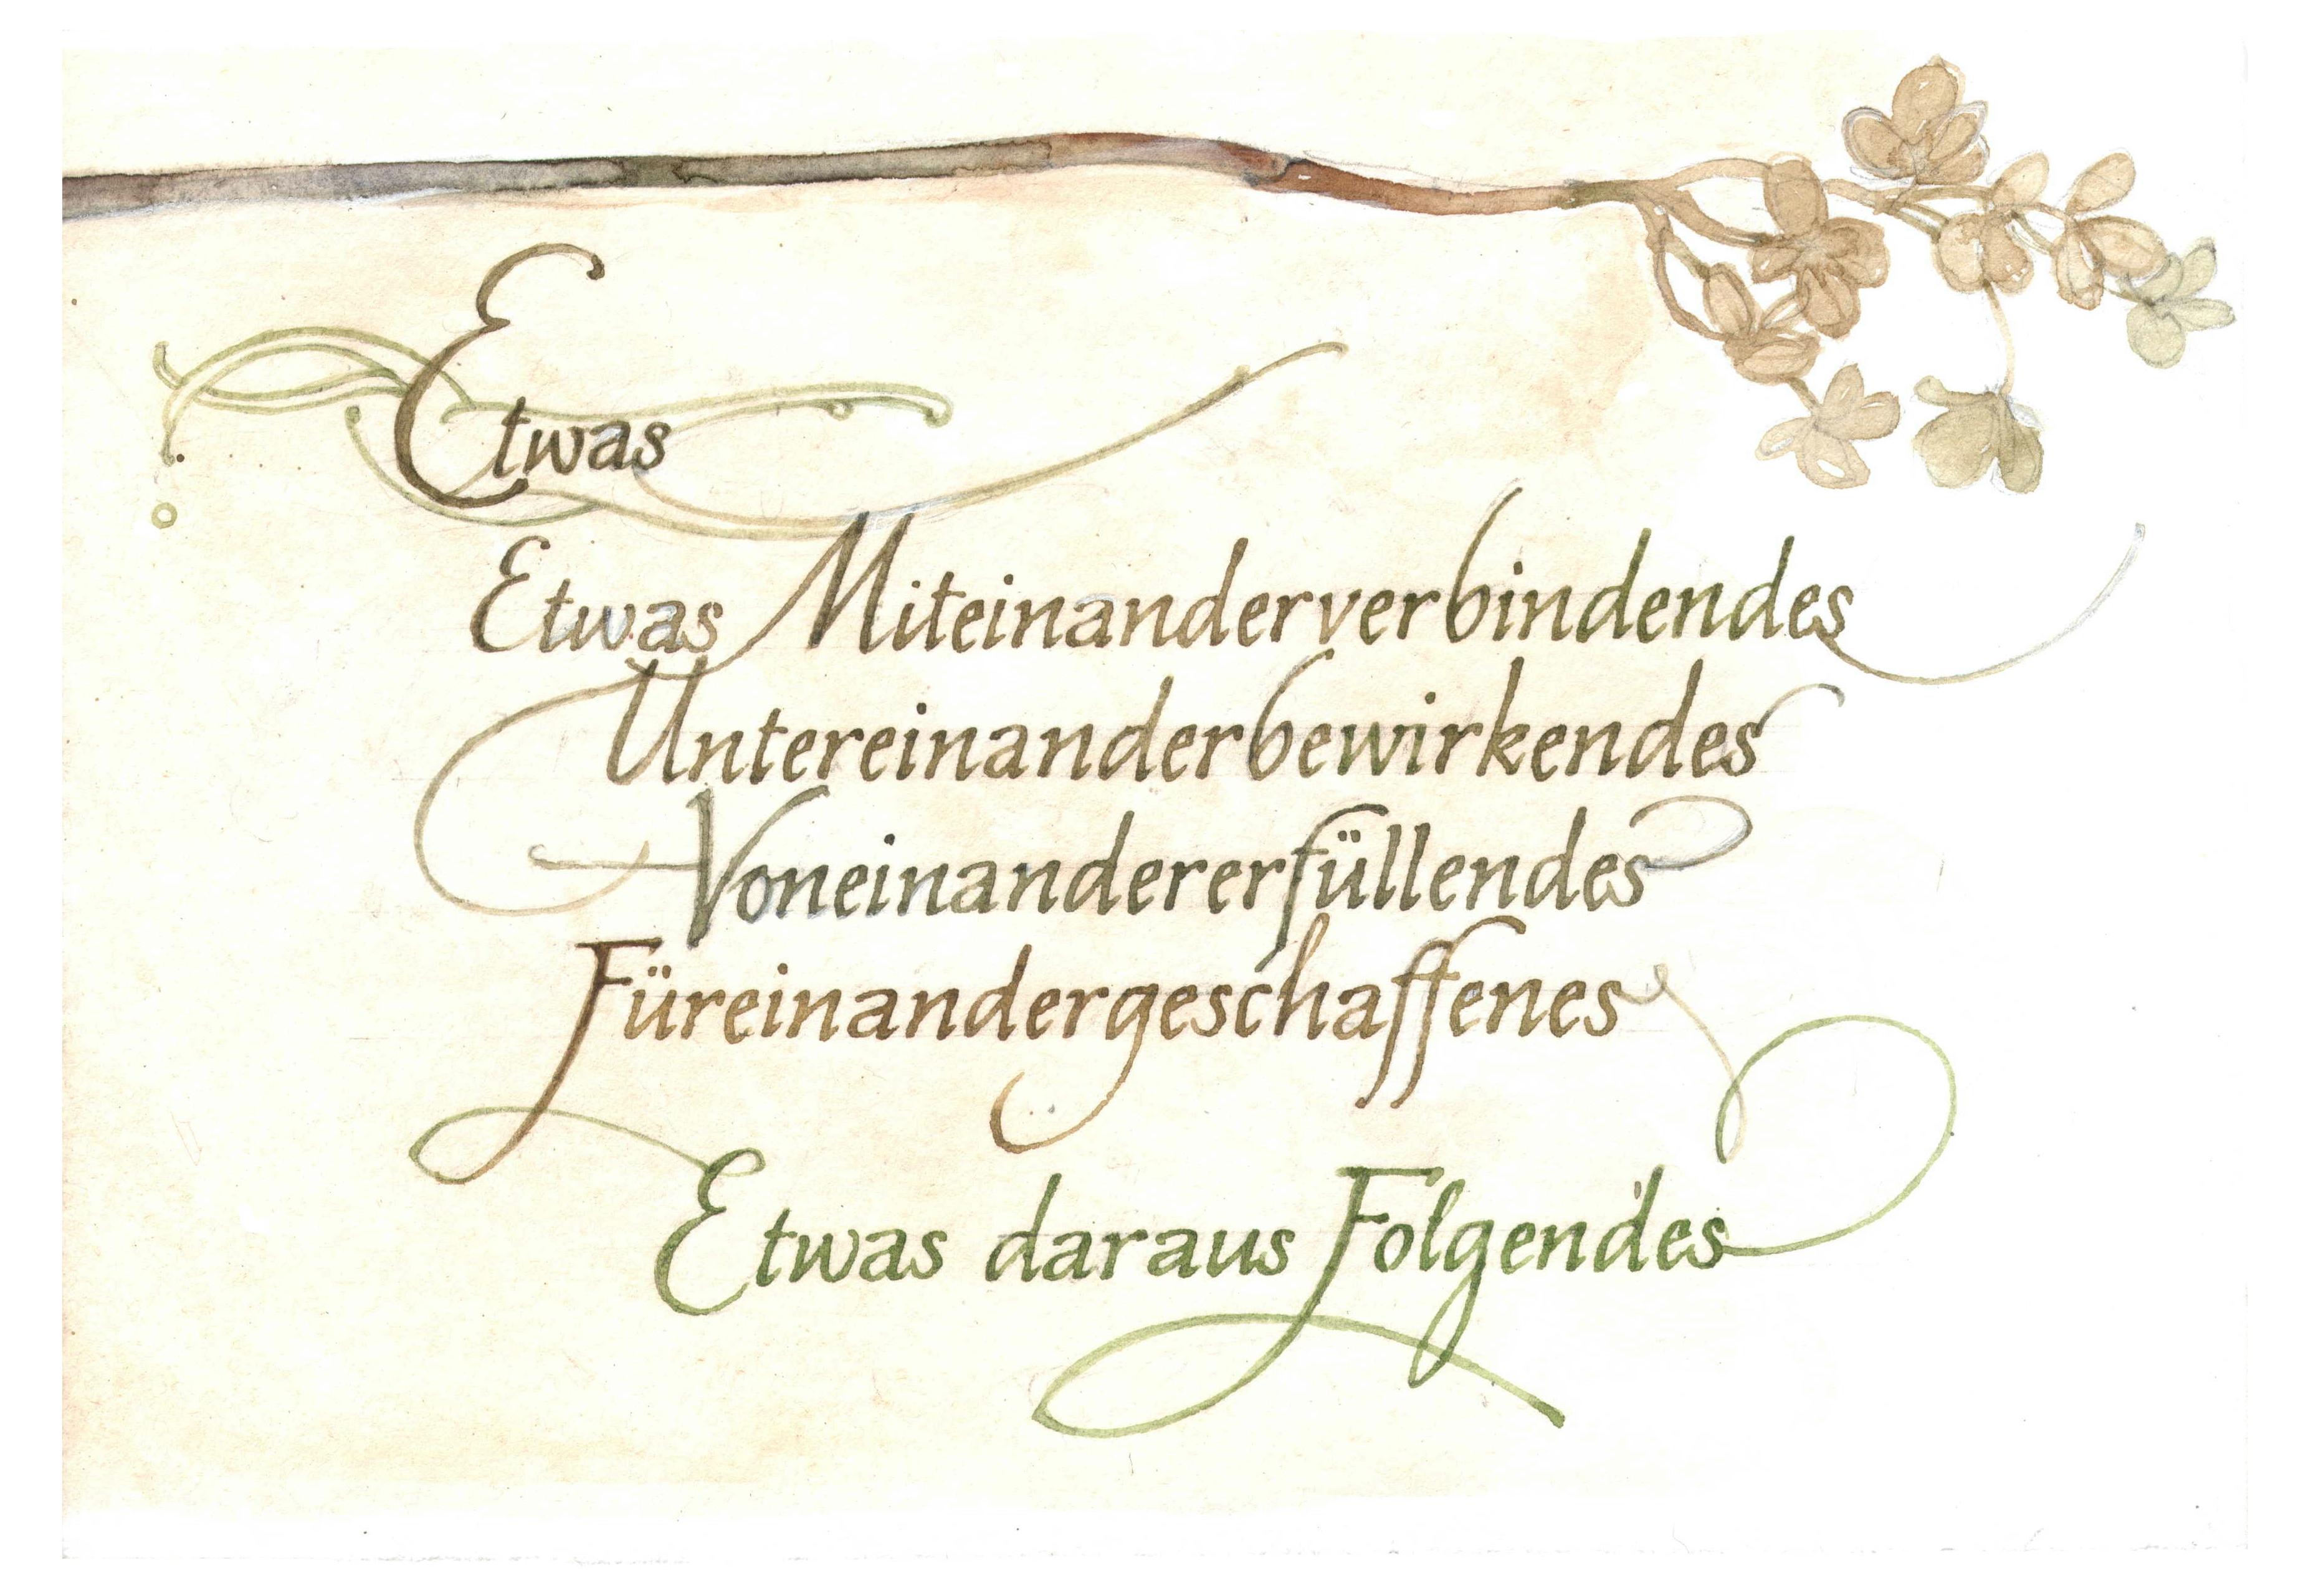 Etwas
Etwas Miteinanderverbindendes
Untereinanderbewirkendes
Voneinandererfüllendes
Füreinandergeschaffenes
Etwas daraus Folgendes